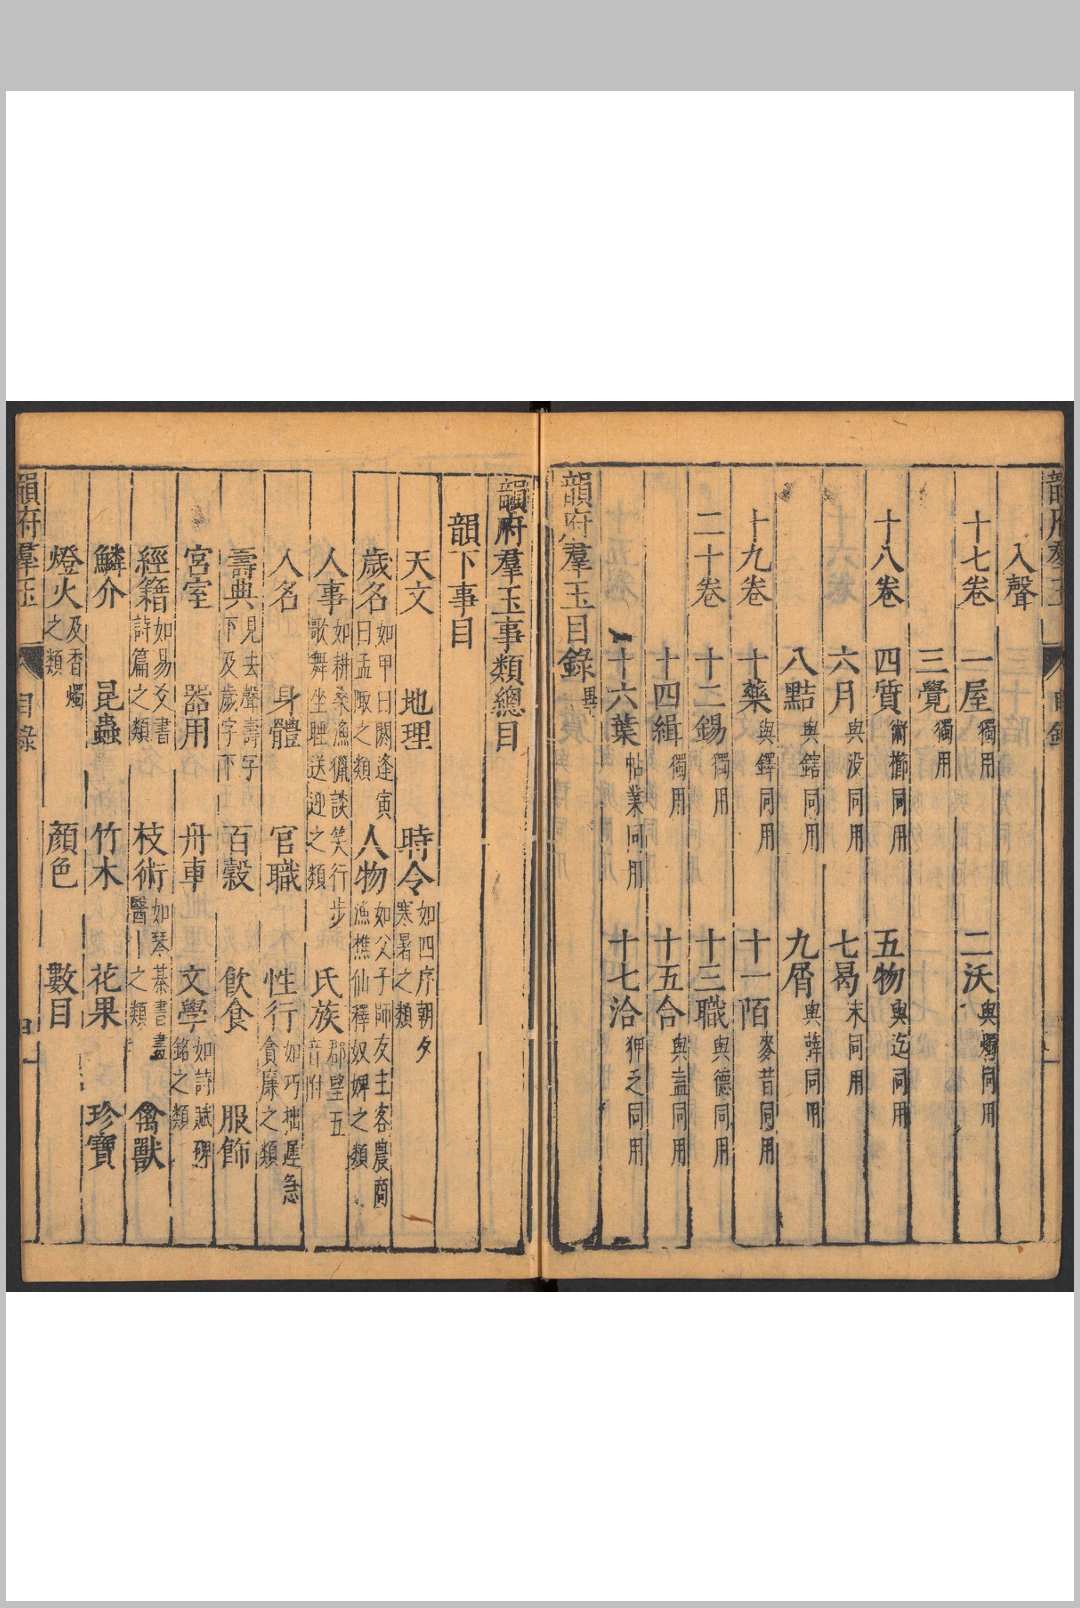 入聲
十七卷 一屋獨用 二沃與燭同用
三覺獨用
十八卷 四質術櫛同用 五物與迄同用
六月與没同用 七曷末同用
八黠與鎋同用 九屑與薛同用
十九卷 十藥與鐸同用 十一陌麥昔同用
二十卷 十二錫獨用 十三職與德同用
十四緝獨用 十五合與盍同用
十六葉帖業同用 十七洽狎之同用
韻府羣玉目錄畢
韻府羣玉事類總目
韻下事目
天文 地理 時令如四序朝夕寒暑之類
歲名如甲曰閼逢寅曰孟陬之類 人物如父子師友主客農商漁樵仙釋奴婢之類
人事如耕桑漁獵談笑行步歌舞坐睡送迎之類 氏族郡望五音附
人名 身體 官職 性行如巧拙遲急貪廉之類
壽典見去聲壽字下及歲字下 百穀 飲食 服飾
宮室 器用 舟車 文學如詩賦碑銘之類
經籍如易爻書詩篇之類 技術如琴棊書畫醫卜之類 禽獸
鱗介 昆蟲 竹木 花果 珍寶
燈火及香燭之類 顏色 數目
韻府羣玉 目錄